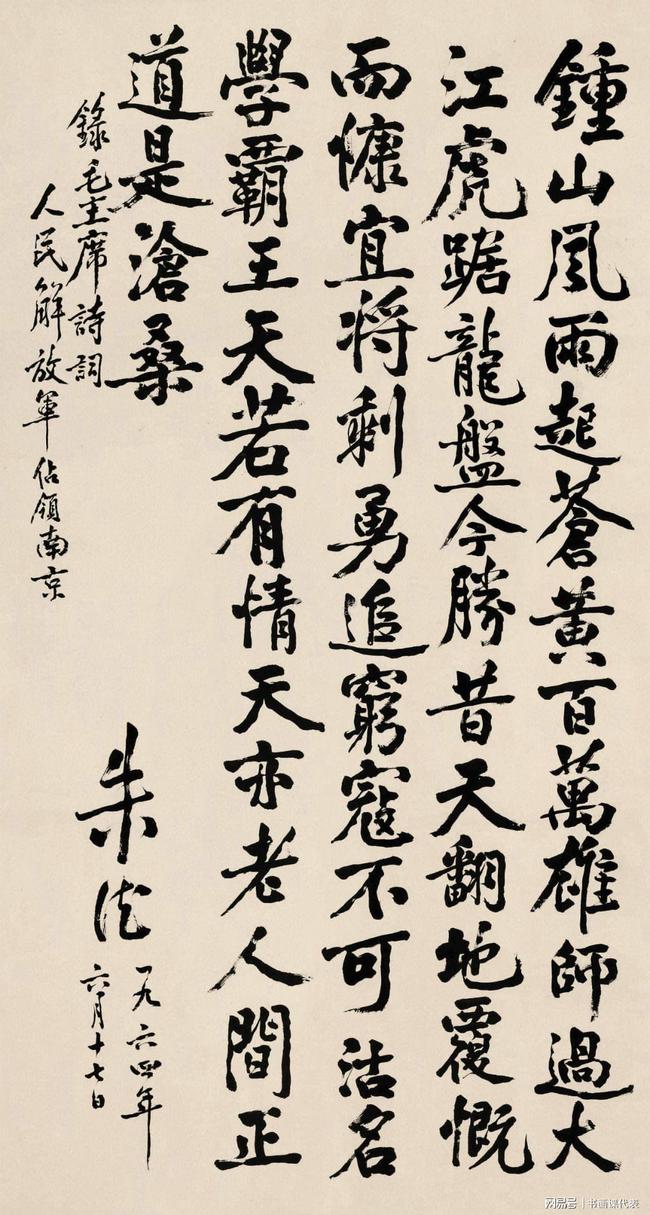 鍾山風雨起蒼黃百萬雄師過大
江虎踞龍盤今勝昔天翻地覆慨
而慷宜将剩勇追窮寇不可沽名
學霸王天若有情天亦老人間正
道是滄桑
錄毛主席詩詞
人民解放軍佔領南京
朱德
一九六四年
六月十七日
网易号 | 书画谋代表